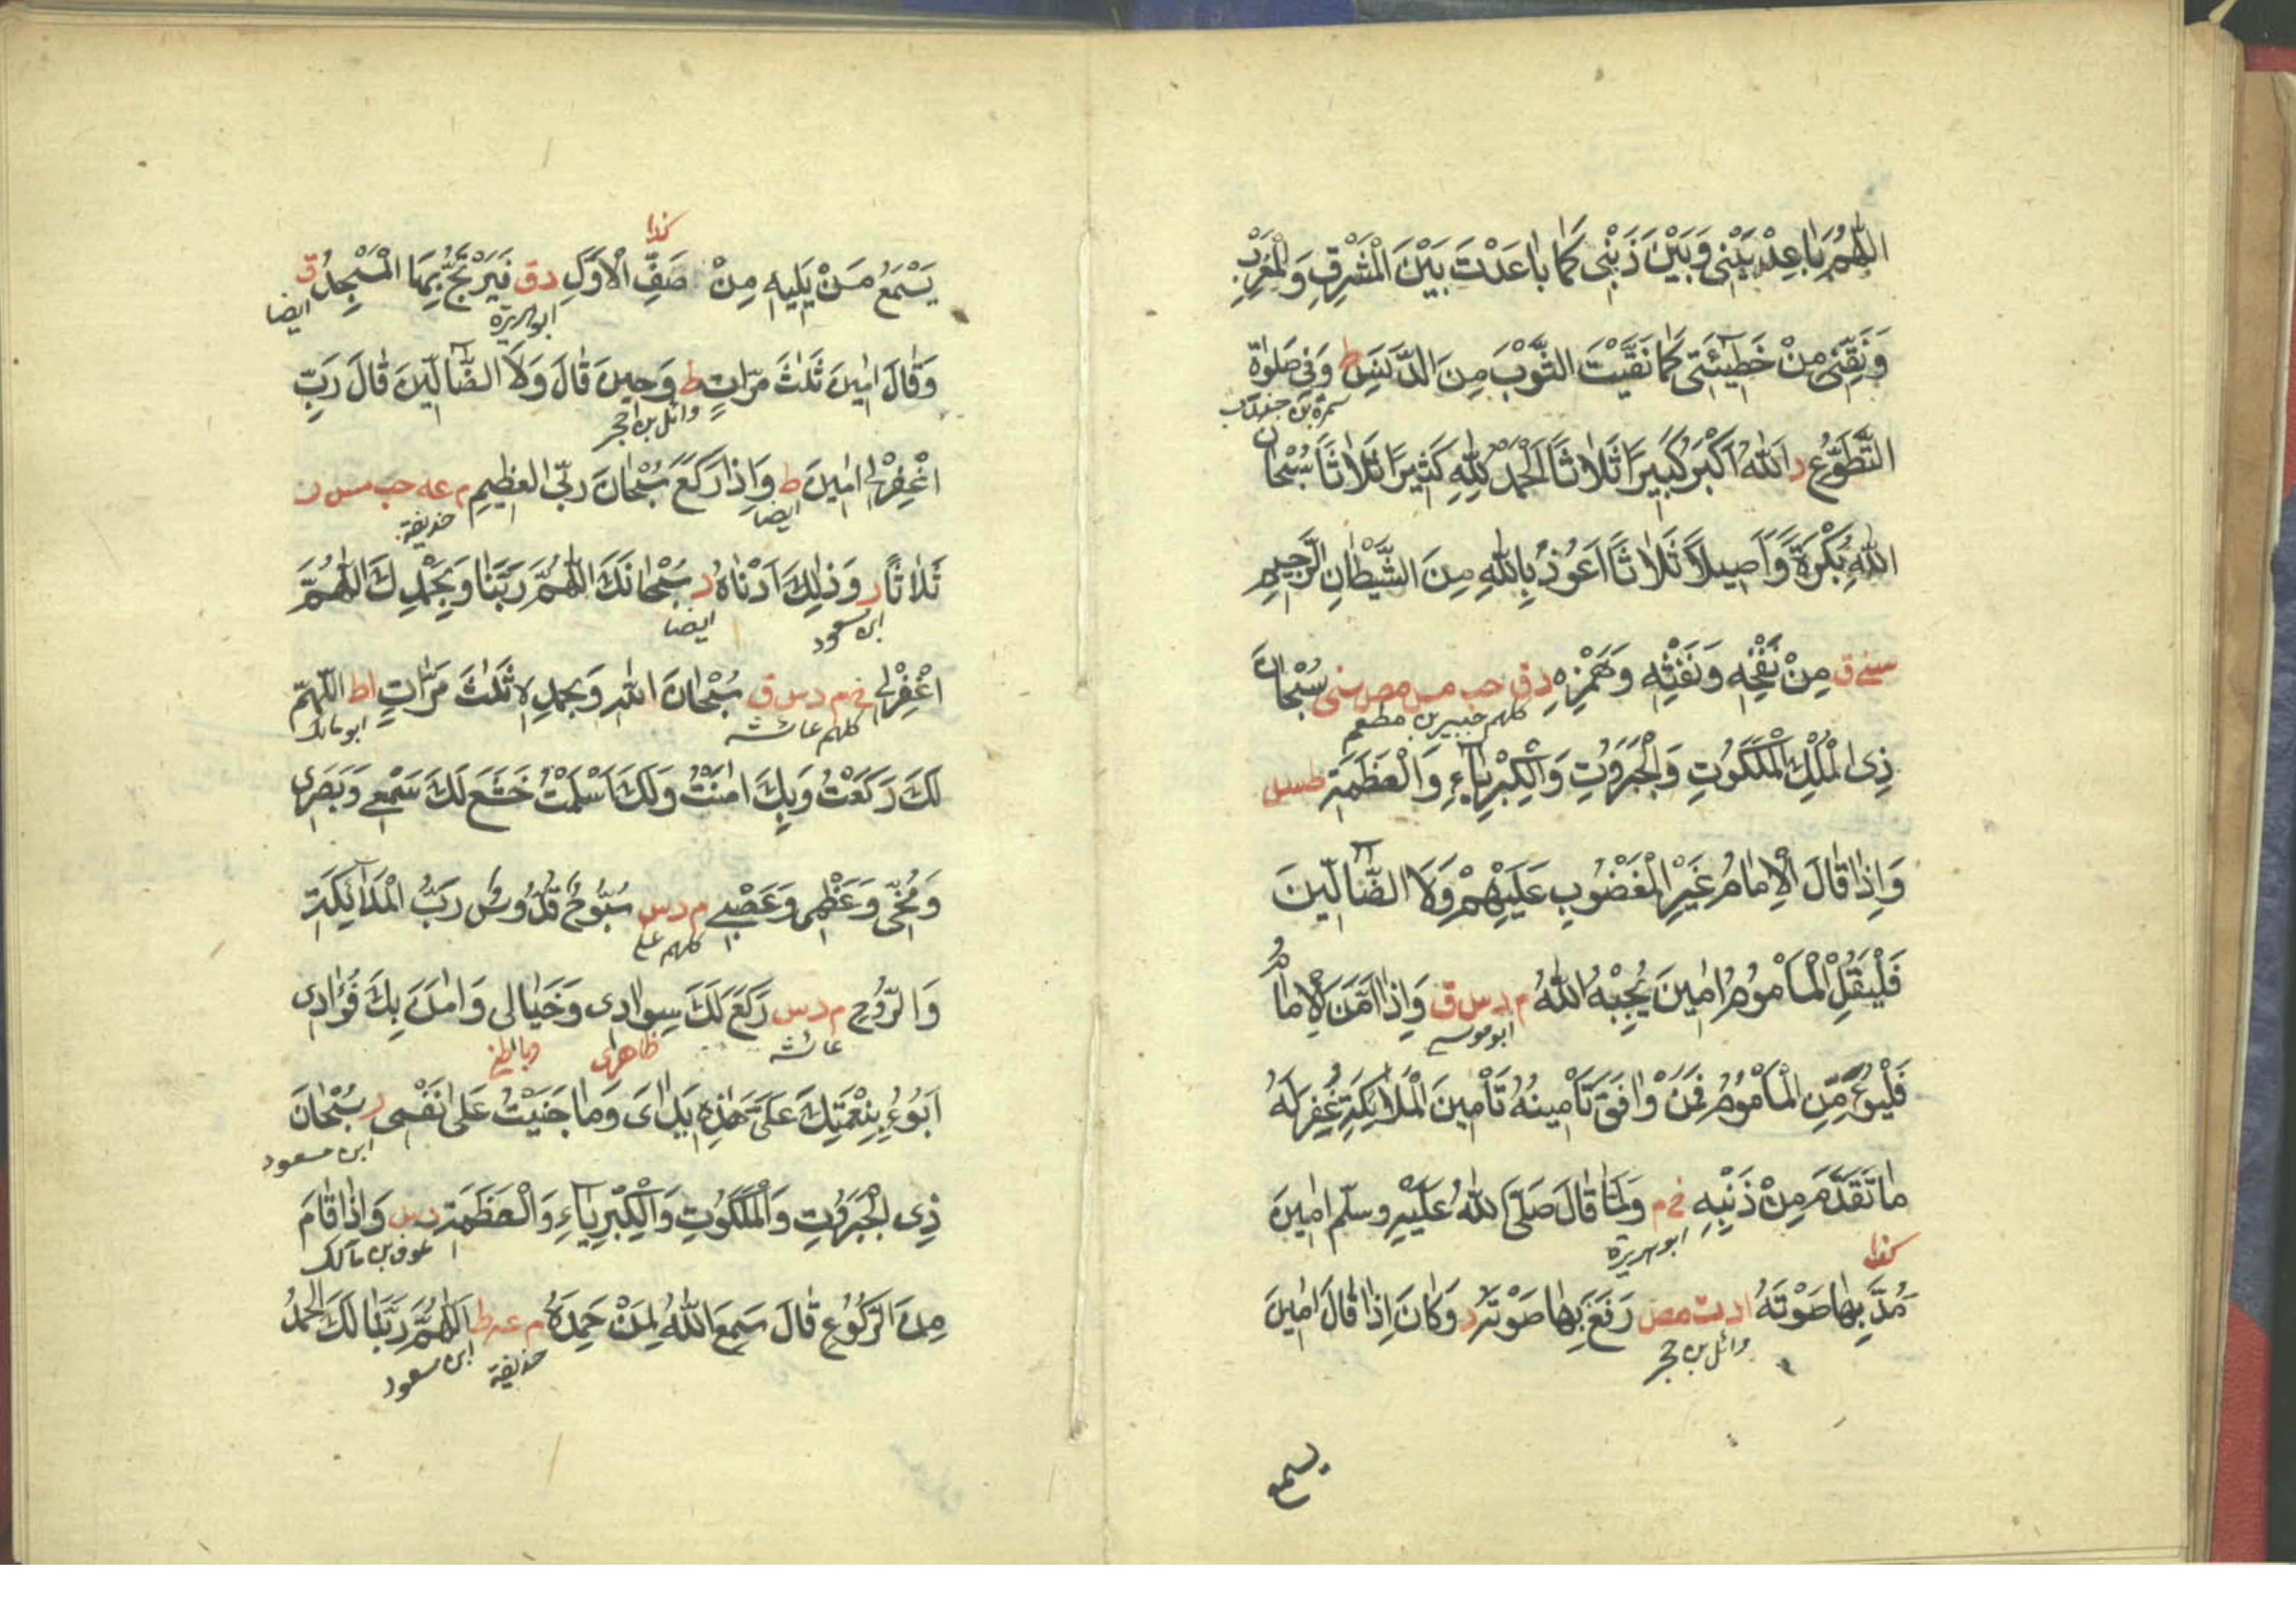 اَللّٰهُمَّ بَاعِدْ بَيْنِى وَبَيْنَ ذَنْبِى كَمَا بَاعَدْتَ بَيْنَ الْمَشْرِقِ وَالْمَغْرِبِ
وَنَقِّنِى مِنْ خَطِيْئَتِى كَمَا نَقَّيْتَ الثَّوْبَ مِنَ الدَّنَسِ ط وَفِى صَلٰوةِ
سمرة بن جندب
التَّطَوُّعِ د اَللّٰهُ اَكْبَرُ كَبِيْرًا ثَلَاثًا اَلْحَمْدُ لِلّٰهِ كَثِيْرًا ثَلَاثًا سُبْحَانَ
اللّٰهِ بُكْرَةً وَّاَصِيْلًا ثَلَاثًا اَعُوْذُ بِاللّٰهِ مِنَ الشَّيْطَانِ الرَّجِيْمِ
مِنْ نَفْخِهٖ وَنَفْثِهٖ وَهَمْزِهٖ دق حب مس مص سنى سُبْحَانَ
كلهم جبير بن مطعم
ذِى الْمُلْكِ الْمَلَكُوْتِ وَالْجَبَرُوْتِ وَالْكِبْرِيَاءِ وَالْعَظَمَةِ طس
وَاِذَا قَالَ الْاِمَامُ غَيْرِ الْمَغْضُوْبِ عَلَيْهِمْ وَلَا الضَّالِّيْنَ
فَلْيَقُلِ الْمَأْمُوْمُ اٰمِيْنَ يُجِبْهُ اللّٰهُ م د س ق وَاِذَا اَمَّنَ الْاِمَامُ
ابو موسى
فَلْيُؤَمِّنِ الْمَأْمُوْمُ فَمَنْ وَافَقَ تَأْمِيْنُهُ تَأْمِيْنَ الْمَلَائِكَةِ غُفِرَ لَهُ
مَا تَقَدَّمَ مِنْ ذَنْبِهٖ خ م وَلَمَّا قَالَ صَلَّى اللّٰهُ عَلَيْهِ وسلّم اٰمِيْنَ
ابو هريرة
كذا
مَدَّ بِهَا صَوْتَهُ ا د ت مص رَفَعَ بِهَا صَوْتَهُ د وَكَانَ اِذَا قَالَ اٰمِيْنَ
وائل بن حجر
يسمع
كذا
يَسْمَعُ مَنْ يَلِيْهِ مِنْ صَفِّ الْاَوَّلِ د ق فَيَرْتَجُّ بِهَا الْمَسْجِدُ ق
ابو هريرة ايضا
وَقَالَ اٰمِيْنَ ثَلٰثَ مَرَّاتٍ ط وَحِيْنَ قَالَ وَلَا الضَّآلِّيْنَ قَالَ رَبِّ
وائل بن حجر
اغْفِرْلِى اٰمِيْنَ ط وَاِذَا رَكَعَ سُبْحَانَ رَبِّىَ الْعَظِيْمِ م عه حب مس ر
ايضا حذيفة
ثَلَاثًا ر وَذٰلِكَ اَدْنَاهُ د سُبْحَانَكَ اللّٰهُمَّ رَبَّنَا وَبِحَمْدِكَ اللّٰهُمَّ
ابن مسعود ايضا
اغْفِرْلِى خ م د س ق سُبْحَانَ اللّٰهِ وَبِحَمْدِهٖ ثَلٰثَ مَرَّاتٍ ا ط اللّٰهُمَّ
كلهم عائشة ابو مالك
لَكَ رَكَعْتُ وَبِكَ اٰمَنْتُ وَلَكَ اَسْلَمْتُ خَشَعَ لَكَ سَمْعِى وَبَصَرِى
وَمُخِّى وَعَظْمِى وَعَصَبِى م د س سُبُّوْحٌ قُدُّوْسٌ رَبُّ الْمَلَائِكَةِ
كلهم على
وَالرُّوْحِ م د س رَكَعَ لَكَ سِوَادِى وَخَيَالِى وَاٰمَنَ بِكَ فُؤَادِى
عائشة ظاهرى وباطنى
اَبُوْءُ بِنِعْمَتِكَ عَلَىَّ هٰذِهٖ يَدَاىَ وَمَا جَنَيْتُ عَلٰى نَفْسِى ر سُبْحَانَ
ابن مسعود
ذِى الْجَبَرُوْتِ وَالْمَلَكُوْتِ وَالْكِبْرِيَاءِ وَالْعَظَمَةِ د س وَاِذَا قَامَ
عوف بن مالك
مِنَ الرُّكُوْعِ قَالَ سَمِعَ اللّٰهُ لِمَنْ حَمِدَهُ م عه ط اَللّٰهُمَّ رَبَّنَا لَكَ الْحَمْدُ
حذيفة ابن مسعود